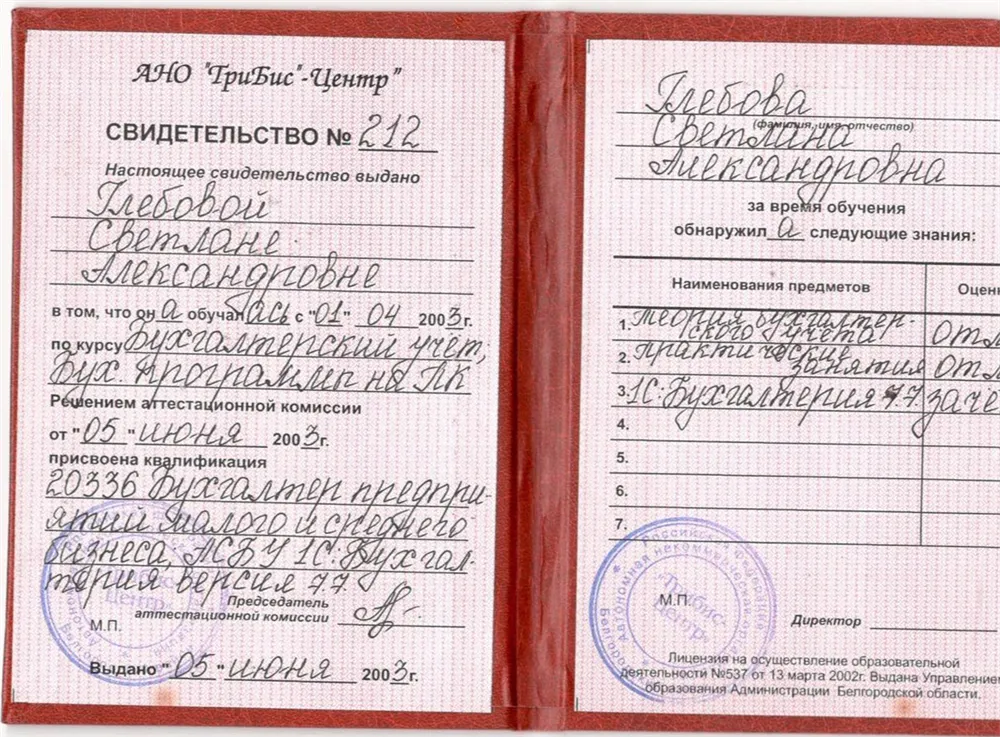 АНО "ТриБис"-Центр"
СВИДЕТЕЛЬСТВО № 212
Настоящее свидетельство выдано
Глебовой
Светлане
Александровне
в том, что он а обучалась с "01" 04 2003г.
по курсу Бухгалтерский учет,
Бух. программы на ПК
Решением аттестационной комиссии
от "05" июня 2003г.
присвоена квалификация
20336 Бухгалтер предпри-
ятий малого и среднего
бизнеса, АСБУ 1С:Бухгал-
терия версия 7.7.
Председатель
аттестационной комиссии
М.П.
Выдано "05" июня 2003г.
Глебова
(фамилия, имя, отчество)
Светлана
Александровна
за время обучения
обнаружил а следующие знания:
Наименования предметов Оценк
1. Теория бухгалтер-
ского учета отл
2. Практические
занятия отл
3. 1С:Бухгалтерия 7.7 заче
4.
5.
6.
7.
Российская Федерация
Автономная некоммерческая
"Трибис-
Центр"
М.П.
Директор
Лицензия на осуществление образовательной
деятельности №537 от 13 марта 2002г. Выдана Управлением
образования Администрации Белгородской области.